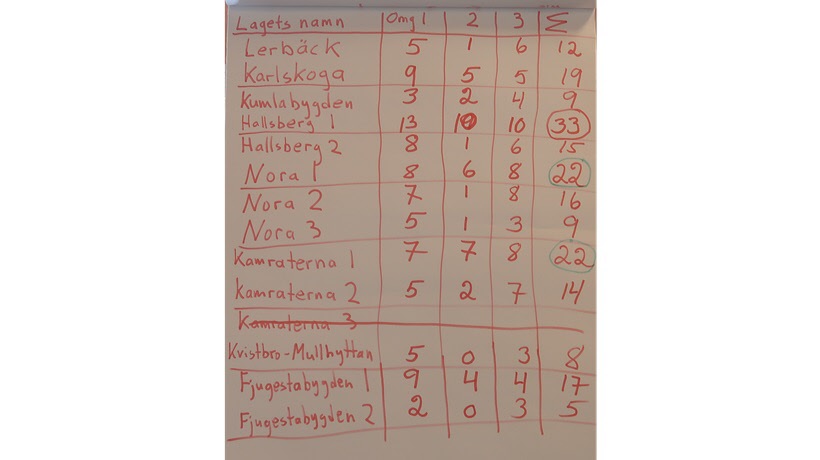 Lagets namn Omg 1 2 3 Σ
Lerbäck 5 1 6 12
Karlskoga 9 5 5 19
Kumlabygden 3 2 4 9
Hallsberg 1 13 10 10 33
Hallsberg 2 8 1 6 15
Nora 1 8 6 8 22
Nora 2 7 1 8 16
Nora 3 5 1 3 9
Kamraterna 1 7 7 8 22
Kamraterna 2 5 2 7 14
Kamraterna 3
Kvistbro-Mullhyttan 5 0 3 8
Fjugestabygden 1 9 4 4 17
Fjugestabygden 2 2 0 3 5